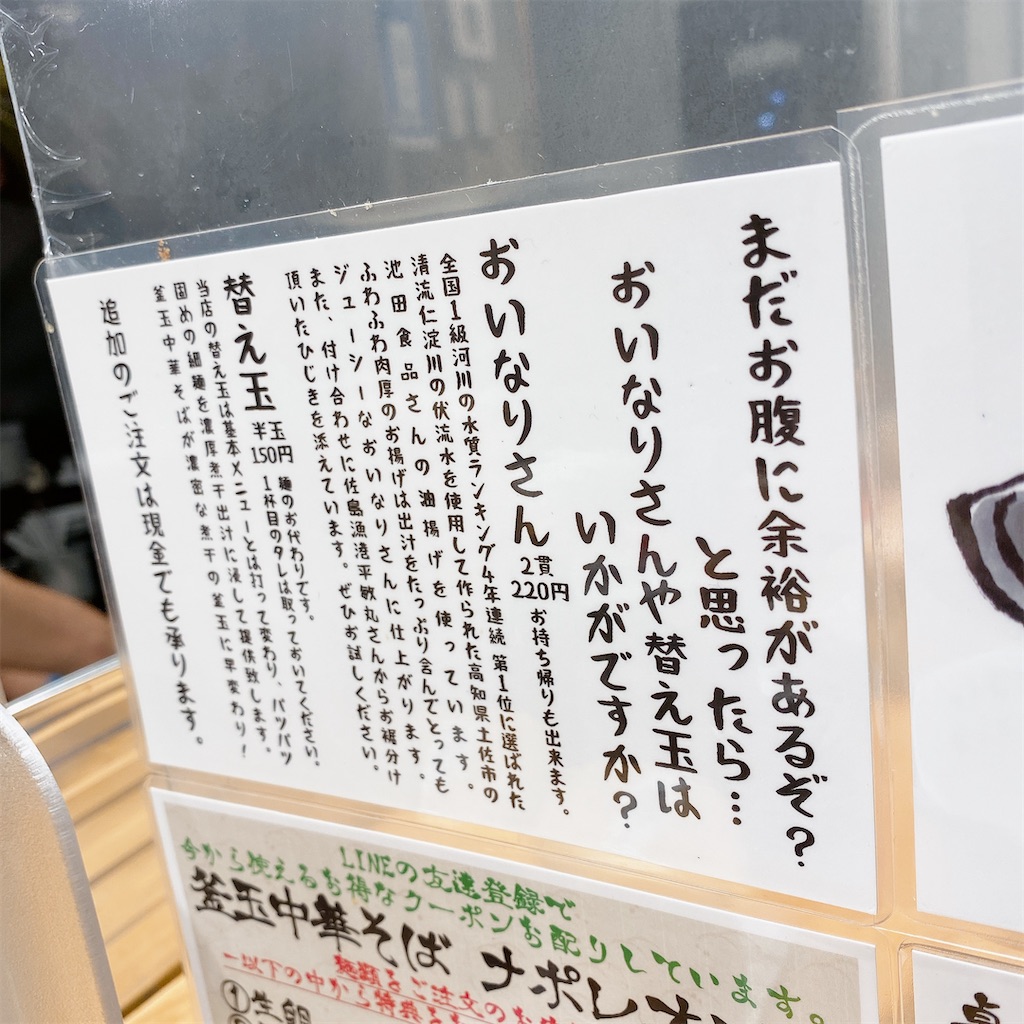 まだお腹に余裕があるぞ？
と思ったら…
おいなりさんや替え玉は
いかがですか？
おいなりさん 2貫 220円 お持ち帰りも出来ます。
全国1級河川の水質ランキング4年連続 第1位に選ばれた
清流仁淀川の伏流水を使用して作られた高知県土佐市の
池田食品さんの油揚げを使っています。
ふわふわ肉厚のお揚げは出汁をたっぷり含んでとっても
ジューシーなおいなりさんに仕上がります。
また、付け合わせに佐島漁港平敏丸さんからお裾分け
頂いたひじきを添えています。ぜひお試しください。
替え玉 半玉 150円 麺のお代わりです。
1杯目のタレは取っておいてください。
当店の替え玉は基本メニューとは打って変わり、パツパツ
固めの細麺を濃厚煮干出汁に浸して提供致します。
釜玉中華そばが濃密な煮干の釜玉に早変わり！
追加のご注文は現金でも承ります。
LINEの友達登録で
今から使えるお得なクーポンお配りしています。
釜玉中華そば ナポレオ
麺類をご注文のお
以下の中から特典を
①生卵